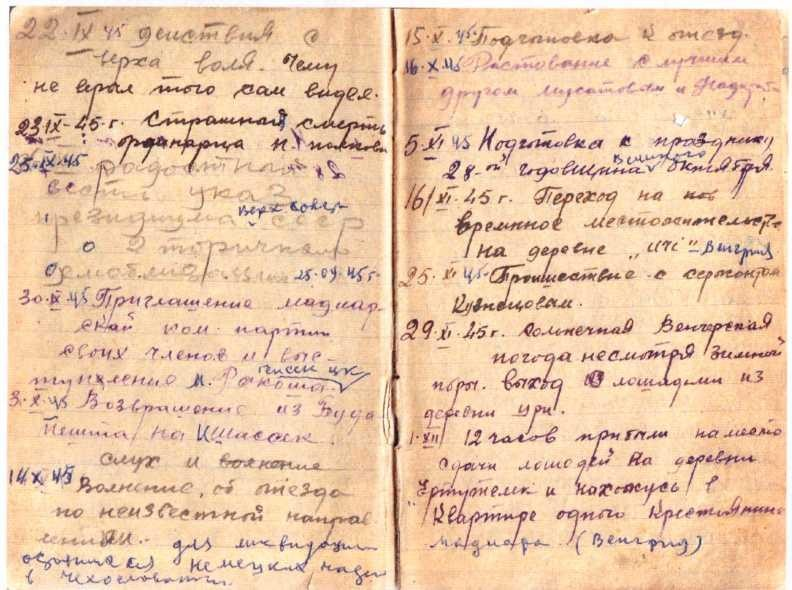 22.IX 45 действия с
верха воля. Чему
не врыл того сам видел.
23 IX-45 г. Страшная смерть
ординарца
25.IX.45 радостная
весть указ
президиума верх совет СССР
о 2 торичкой
25.09.45 г.
30.IX 45 Приглашение мадиар-
ской ком. партии
своих членов и выс-
тупхление М. Ракоша. чисек цк
3.X.45 Возврашение из Буда
пешта на
слух и воление
14.X 45 Волнение, об отезда
по неизвестной направ
лении. для ликвидации
немецких наци
в Чехословатии.
15.X.45 Подготовка к отезд.
16.X 45 Растование с лучшим
другом Мусатовым и
5.XI 45 Подготовка к празднику
28-ой годовщина Великого октября.
16/XI.45 г. Переход на нов
временное местожительств
на деревне „ичи" - Венгрия
25.XI 45 Произшествие с сержантом
Кузнецовам.
29.XI.45 г. Солнечная Венгерская
погода несмотря зимной
поры. выход с лошадьми из
деревни ури.
1.XII 12 часов прибыли на место
сдачи лошодей на деревни
и нахожусь в
квартире одного крестьянина
мадиара (Венгрия)